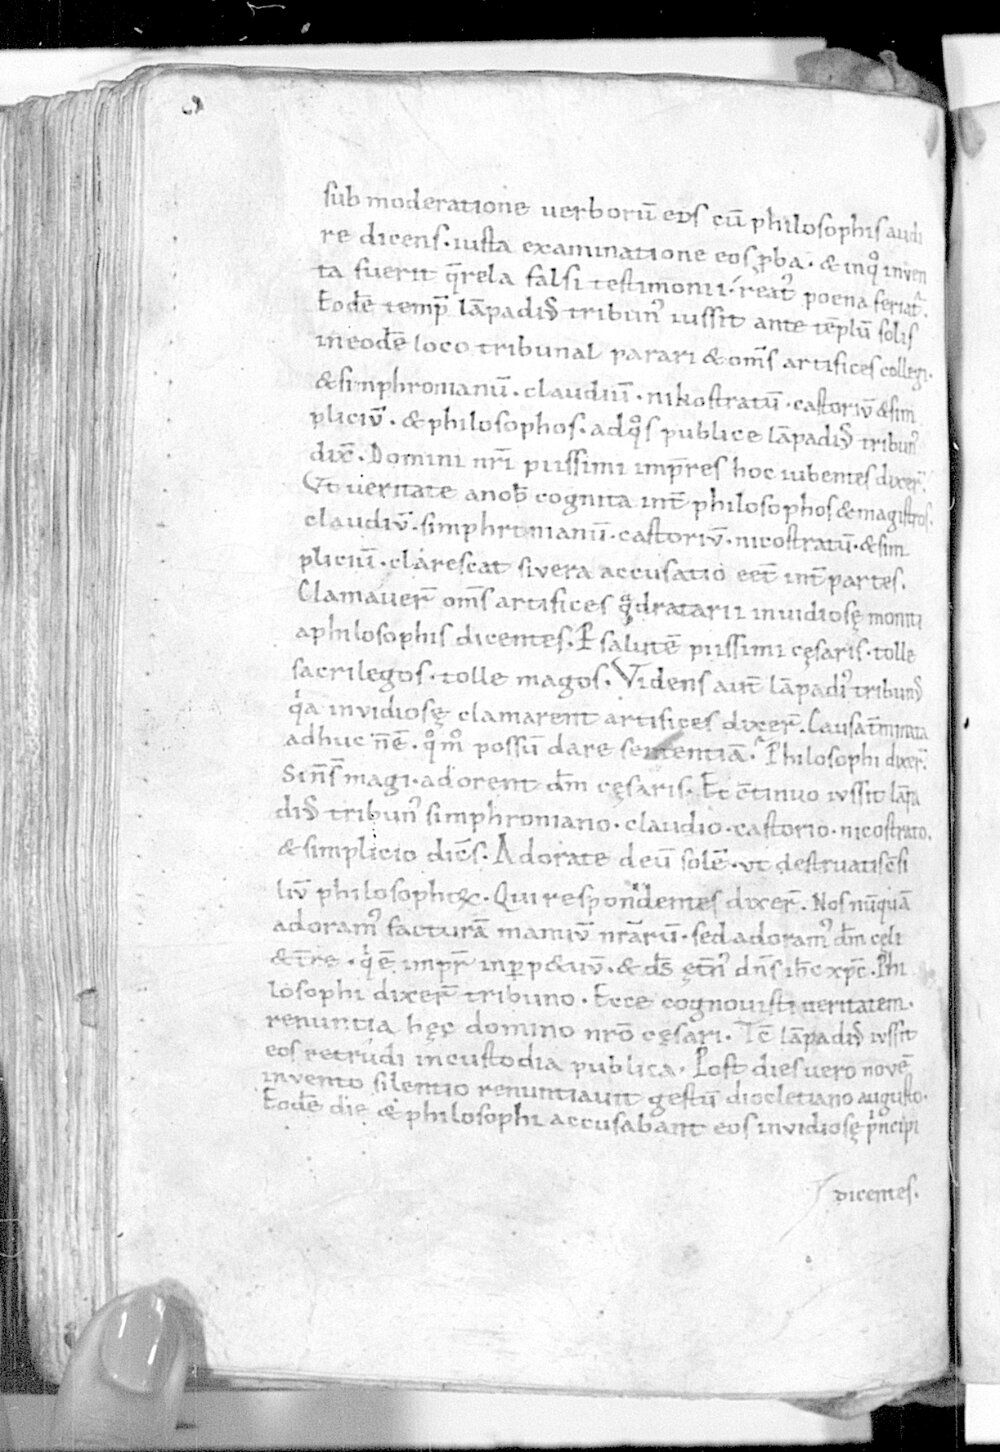 sub moderatione uerborū eos cū philosophis audi
re dicens. iusta examinatione eos ꝓba. & inqͦ inuen
ta fuerit q̄rela falsi testimonii. reatꝰ poena feriat᷑.
Eodē temp̄ lāpadiꝰ tribunꝰ iussit ante tēplū solis
in eodē loco tribunal parari & om̄s artifices collegi.
& simphronianū. claudiū. nikostratū. castoriū & sim
pliciū. & philosophos. ad qͦs publice lāpadiꝰ tribunꝰ
dix̄. Domini nr̄i piissimi imp̄res hoc iubentes dixer̄.
Vt ueritate a nob̄ cognita int̄ philosophos & magistros.
claudiū. simphronianū. castoriū. nicostratū. & sim
pliciū. clarescat si uera accusatio eēt int̄ partes.
Clamauer̄ om̄s artifices qͣdratarii inuidiosę moniti
a philosophis dicentes. P salutē piissimi cęsaris. tolle
sacrilegos. tolle magos. Videns aut̄ lāpadiꝰ tribunꝰ
qͥa inuidiosę clamarent artifices dixer̄. Causa t̄minata
adhuc n̄ ē. qͦmͦ possū dare sententiā. Philosophi dixer̄.
Si n̄ s̄ magi. adorent dm̄ cęsaris. Et c̄tinuo iussit lāpa
diꝰ tribunꝰ simphroniano. claudio. castorio. nicostrato.
& simplicio dic̄s. Adorate deū solē. ut destruatis c̄si
liū philosophoꝝ. Qui respondentes dixer̄. Nos nūquā
adoramꝰ facturā manuū nr̄arū. sed adoramꝰ dm̄ cęli
& t̄re. qͥ ē imp̄r inp̱p&uū. & ds̄ ęt̄nꝰ dn̄s ih̄c xp̄c. Phi
losophi dixer̄ tribuno. Ecce cognouisti ueritatem.
renuntia hęc domino nr̄o cęsari. Tc̄ lāpadiꝰ iussit
eos retrudi in custodia publica. Post dies uero nouē
inuento silentio renuntiauit gestū diocletiano augusto.
Eodē die & philosophi accusabant eos inuidiosę pͥncipi
dicentes.